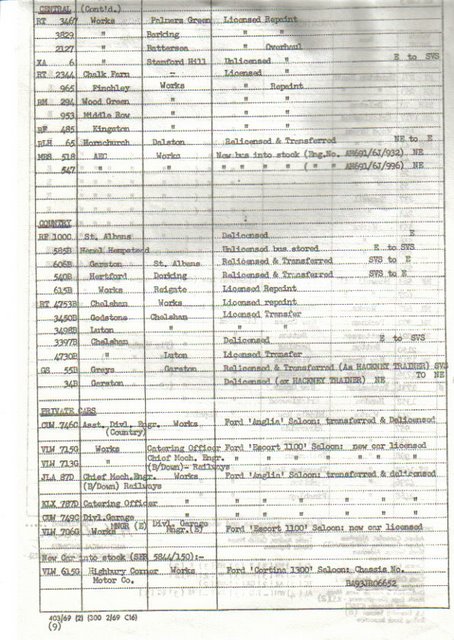 CENTRAL (Cont'd.)
RT 3467 Works Palmers Green Licensed Repaint
3829 " Barking " "
2127 " Battersea " Overhaul
XA 6 " Stamford Hill Unlicensed " E to SVS
RT 2344 Chalk Farm - Licensed "
965 Finchley Works " Repaint
RM 294 Wood Green " " "
953 Middle Row " " "
RF 485 Kingston " " "
RLH 65 Hornchurch Dalston Relicensed & Transferred NE to E
MBS 518 AEC Works New bus into stock (Eng.No. AH691/6J/932) NE
547 " " " " " " ( " " AH691/6J/996) NE
COUNTRY
RF 1000 St. Albans Delicensed E
585B Hemel Hempstead Unlicensed bus stored E to SVS
606B Garston St. Albans Relicensed & Transferred SVS to E
540B Hertford Dorking Relicensed & Transferred SVS to E
615B Works Reigate Licensed Repaint
RT 4753B Chelsham Works Licensed repaint
3450B Godstone Chelsham Licensed Transfer
3498B Luton " " "
3397B Chelsham Delicensed E to SVS
4730B " Luton Licensed Transfer
GS 55B Grays Garston Relicensed & Transferred (As HACKNEY TRAINER) SVS TO NE
34B Garston Delicensed (ex HACKNEY TRAINER) NE
PRIVATE CARS
CUW 746C Asst. Divl. Engr. Works Ford 'Anglia' Saloon: transferred & Delicensed
(Country)
VLW 715G Works Catering Officer Ford 'Escort 1100' Saloon: new car licensed
VLW 713G " Chief Mech. Engr. " " " " " "
(B/Down)- Railways
JLA 87D Chief Mech.Engr. Works Ford 'Anglia' Saloon: transferred & delicensed
(B/Down) Railways
KLX 787D Catering Officer " " " " " "
CUW 749C Divl.Garage " " " " " "
MNGR (E) Divl. Garage
VLW 706G Works Engr.(E) Ford 'Escort 1100' Saloon: new car licensed
New Car into stock (SER 5844/150):-
VLW 615G Highbury Corner Works Ford 'Cortina 1300' Saloon: Chassis No.
Motor Co. BA93JR06652
403/69 (2) (300 2/69 C16)
(9)